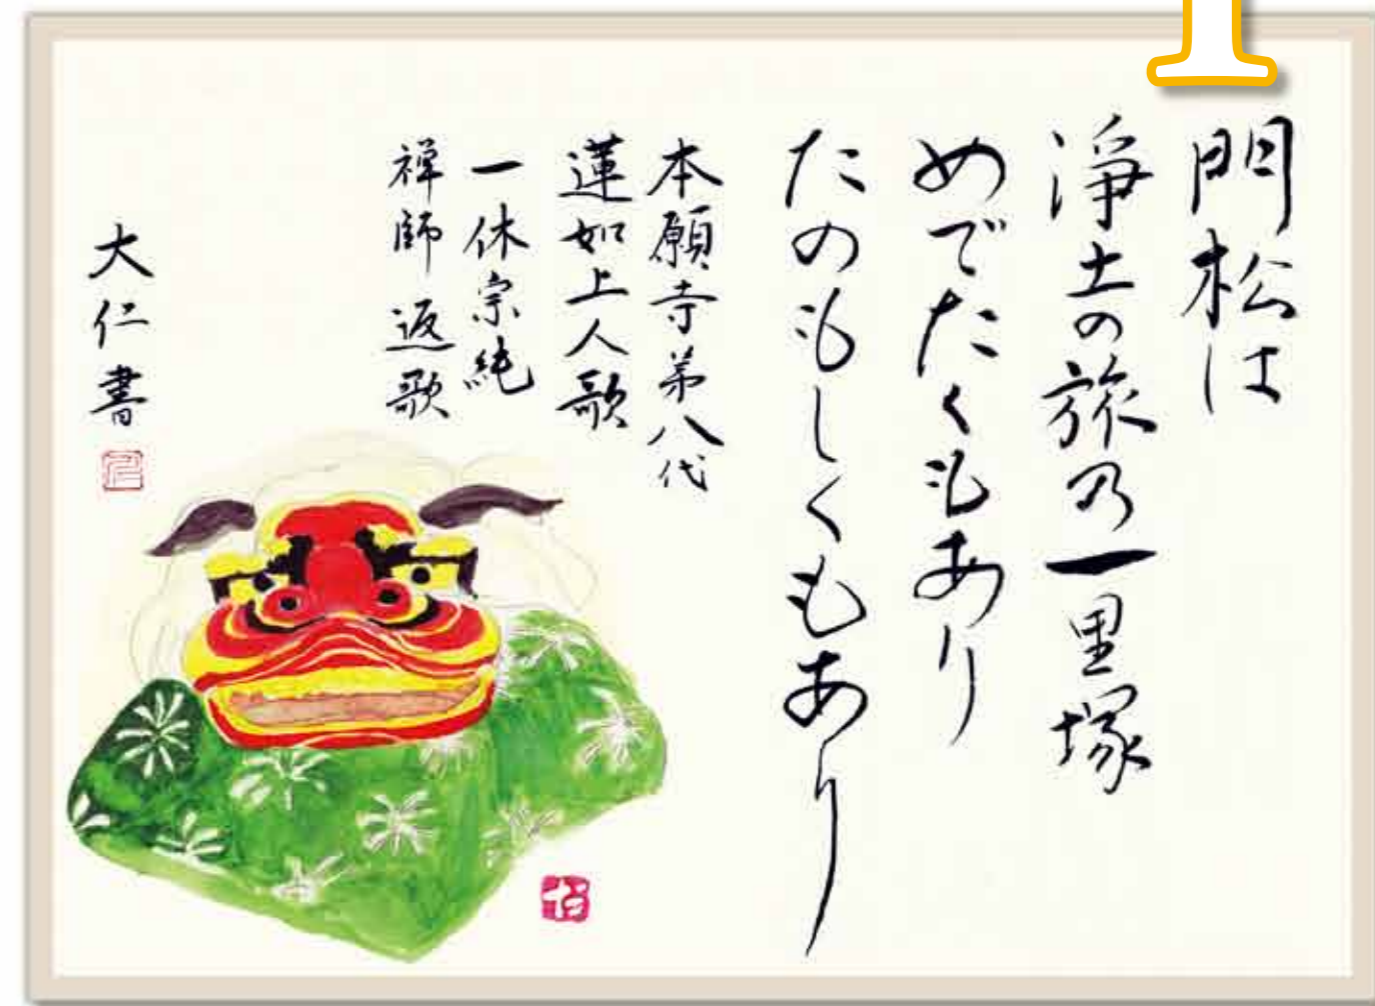 1
門松は
淨土の旅乃一里塚
めでたくもあり
たのもしくもあり
本願寺第八代
蓮如上人歌
一休宗純
禅師返歌
大仁書